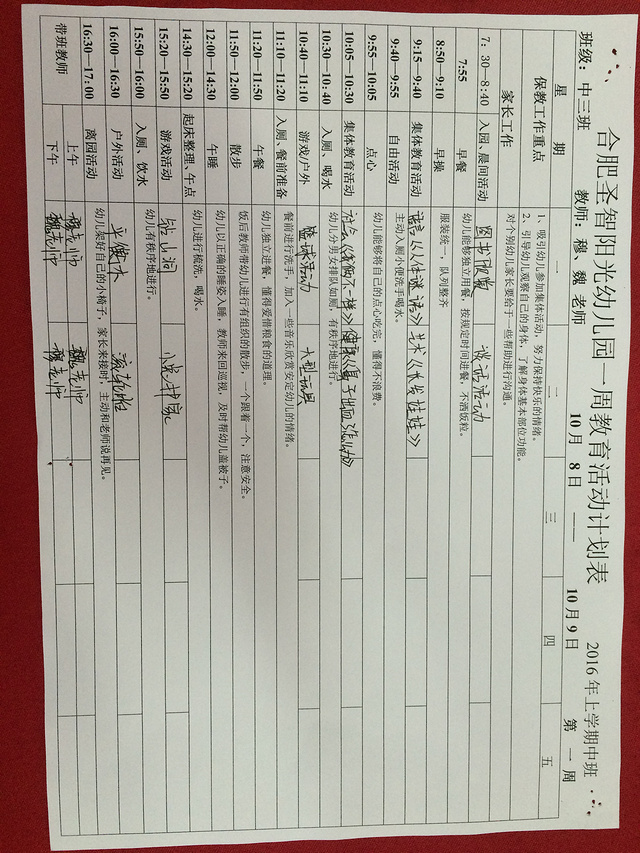 合肥圣智阳光幼儿园一周教育活动计划表
2016年上学期中班
班级：中三班 教师：穆 魏 老师 10月8日 —— 10月9日 第一周
星期 一 二 三 四 五
保教工作重点 1、吸引幼儿参加集体活动，努力保持快乐的情绪。
2、引导幼儿观察自己的身体，了解身体基本部位功能。
家长工作 对个别幼儿家长要给于一些帮助进行沟通。
7：30-8:40 入园、晨间活动 图书阅览 谈话活动
7:55 早餐 幼儿能够独立用餐，按规定时间进餐，不洒饭粒。
8:50—9:10 早操 服装统一，队列整齐
9:15—9:40 集体教育活动 语言《人体谜语》 艺术《毛发娃娃》
9:40—9:55 自由活动 主动入厕小便洗手喝水。
9:55—10:05 点心 幼儿能够将自己的点心吃完，懂得不浪费。
10:05—10:30 集体教育活动 社会《你我不一样》 健康《鼻子出血怎么办》
10:30—10:40 入厕、喝水 幼儿分男女排队如厕，有秩序地进行。
10:40—11:10 游戏/户外 篮球活动 大型玩具
11:10—11:20 入厕、餐前准备 餐前进行洗手，加入一些音乐欣赏安定幼儿的情绪。
11:20—11:50 午餐 幼儿独立进餐，懂得爱惜粮食的道理。
11:50—12:00 散步 饭后教师带幼儿进行有组织的散步，一个跟着一个，注意安全。
12:00—14:30 午睡 幼儿以正确的睡姿入睡，教师来回巡视，及时帮幼儿盖被子。
14:30—15:20 起床整理、午点 幼儿进行梳洗、喝水。
15:20—15:50 游戏活动 钻山洞
15:50—16:00 入厕、饮水 幼儿有秩序地进行。
16:00—16:30 户外活动 平衡木
16:30—17:00 离园活动 幼儿架好自己的小椅子，家长来接时，主动和老师说再见。
带班教师 上午 穆老师 魏老师
下午 魏老师 穆老师